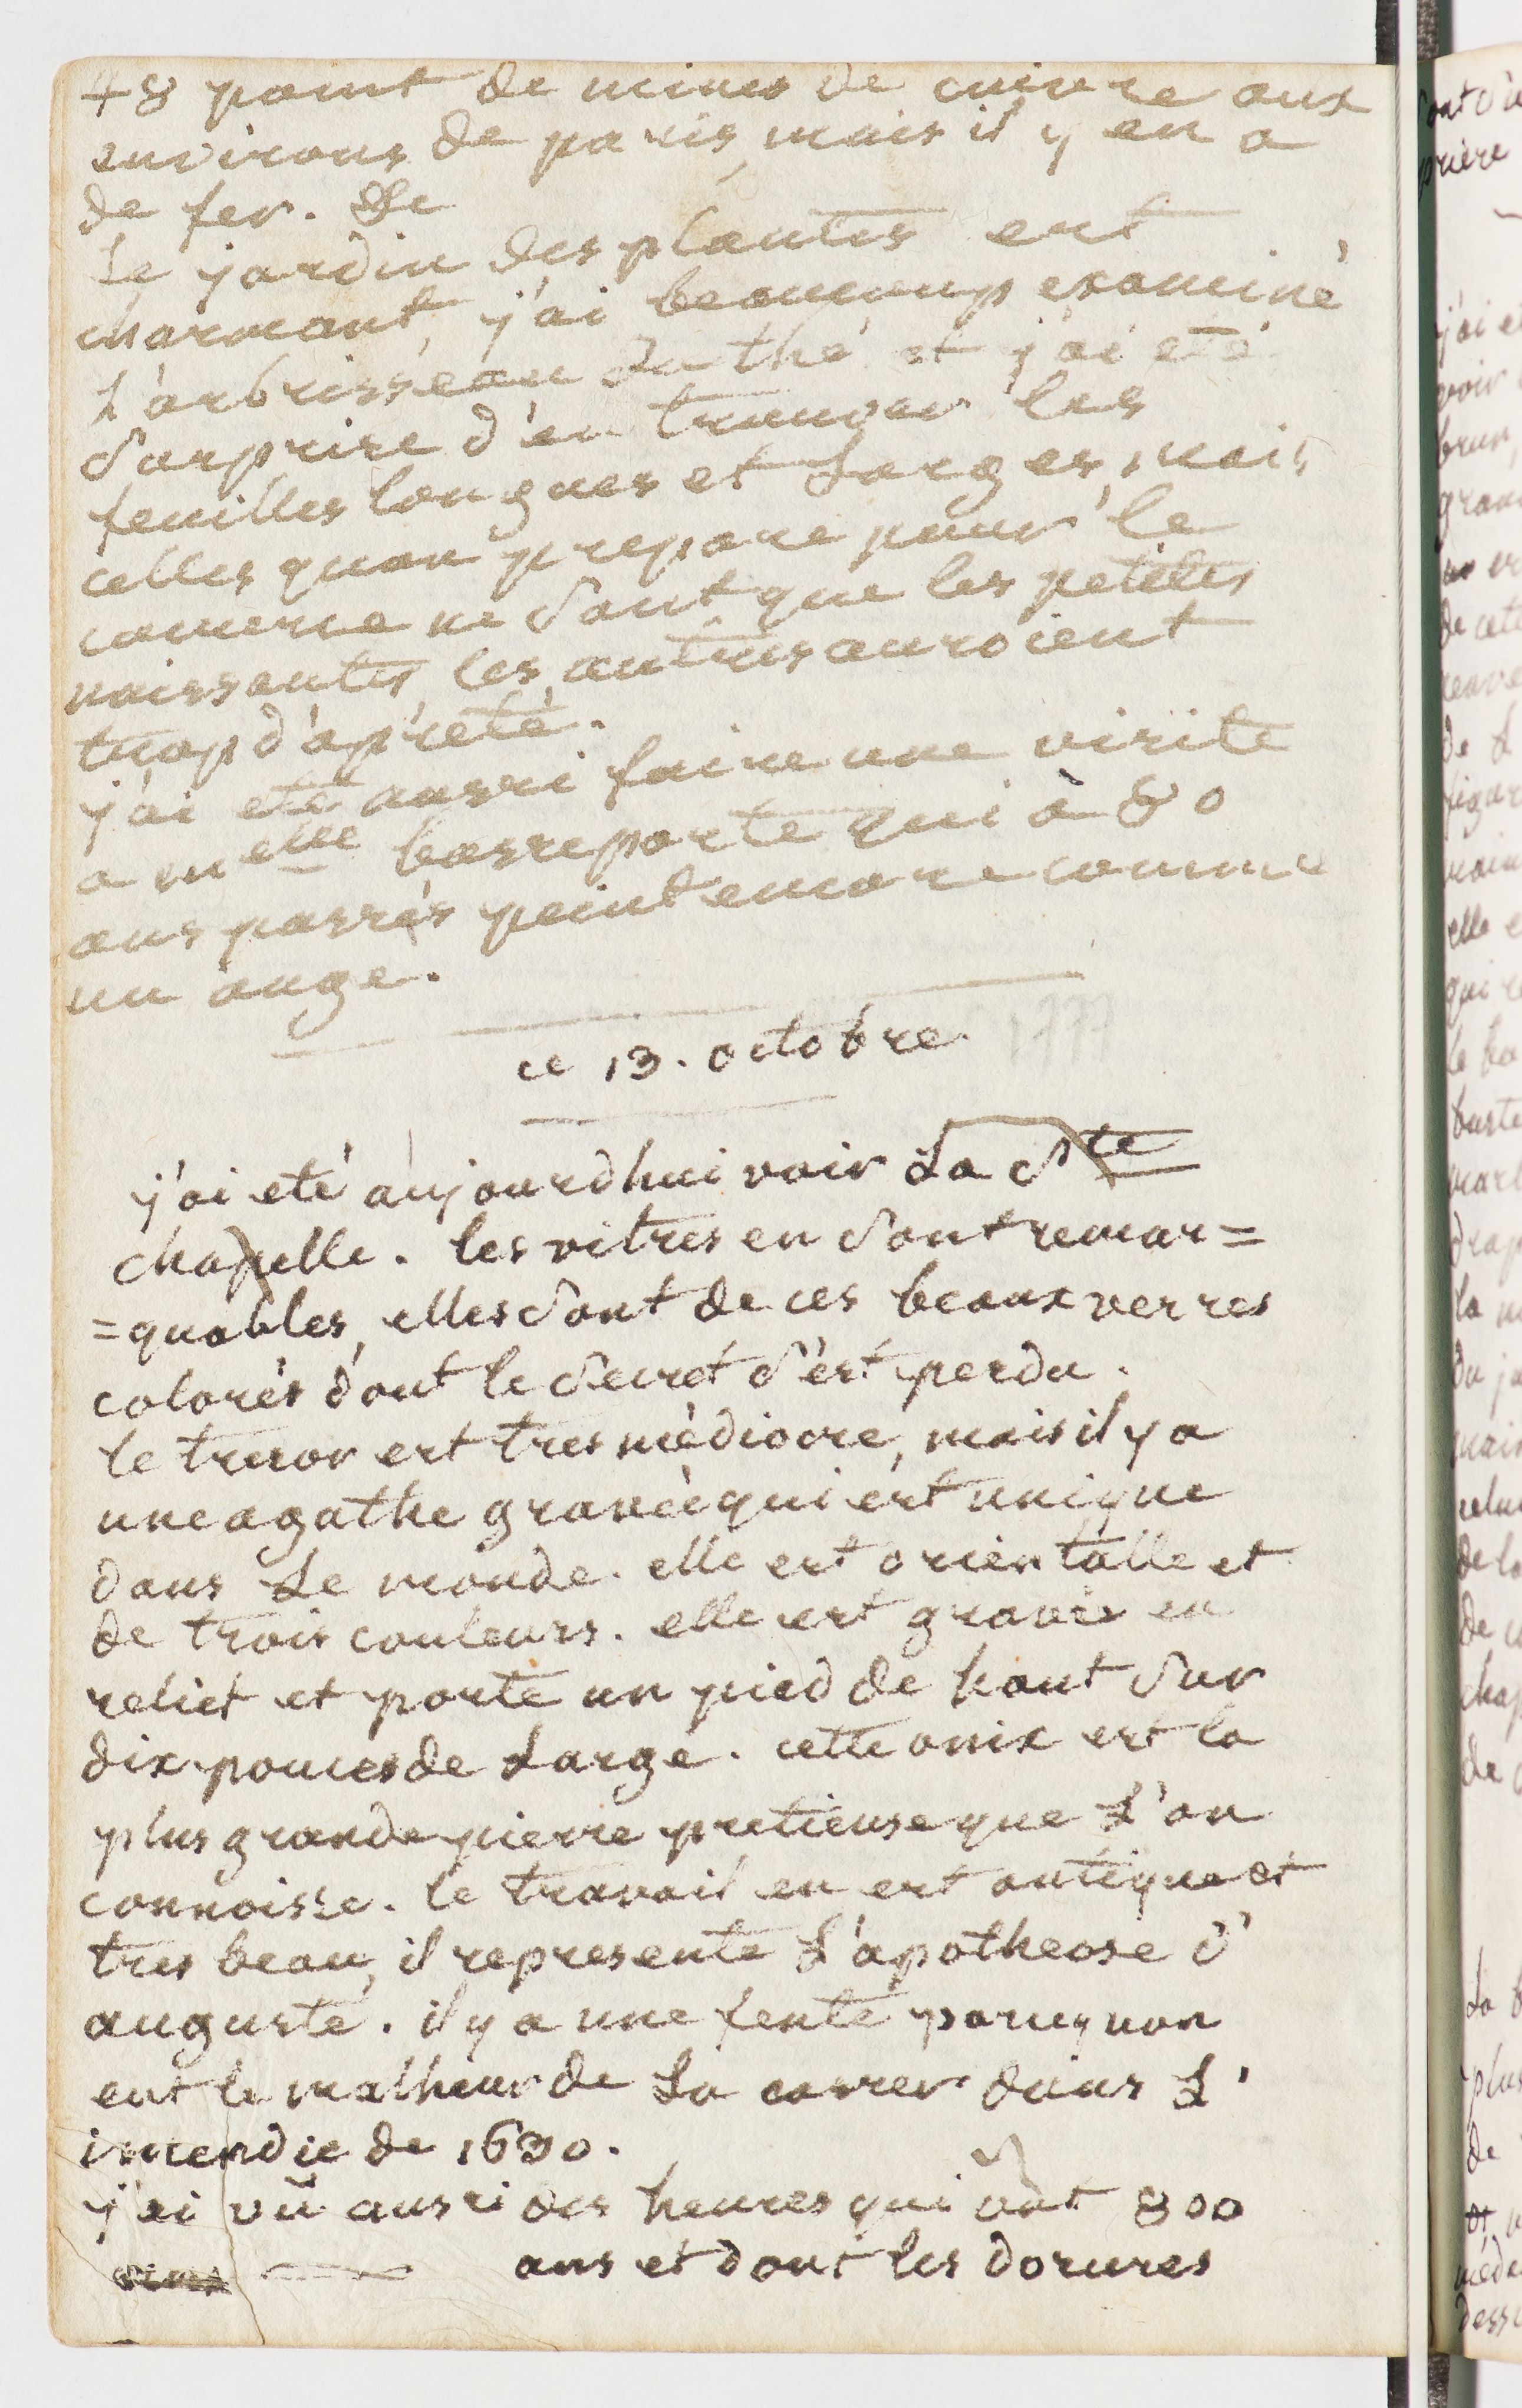 48 point de mines de cuivre aux
environs de paris, mais il y en a
de fer. De
Le jardin des plantes est
charmant, j'ai beaucoup examiné
L'arbrisseau du thé et j'ai eté
surprise d'en trouver les
feuilles longues et Larges, mais
celles quon prepare pour le
comerce ne sont que les petites
naissantes, les autres auroient
trop d'apreté.
j'ai eté aussi faire une visite
a melle basseporte qui à 80
ans passés peint encore comme
un ange.
ce 13. octobre. 1777
j'ai eté aujourdhui voir La Ste
chapelle. les vitres en sont remar=
=quables, elles sont de ces beaux verres
colorés dont le secret s'est perdu.
le tresor est tres médiocre, mais il y a
une agathe gravée qui est unique
dans Le monde. elle est orientalle et
de trois couleurs. elle est gravée en
relief et porte un pied de haut sur
dix pouces de Large. cette onix est la
plus grande pierre pretieuse que L'on
connoisse. le travail en est antique et
tres beau, il represente L'apotheose d'
auguste. il y a une fente parcequon
eut le malheur de La casser dans L'
incendie de 1630.
j'ai vû aussi des heures qui ont 800
ans et dont les dorures